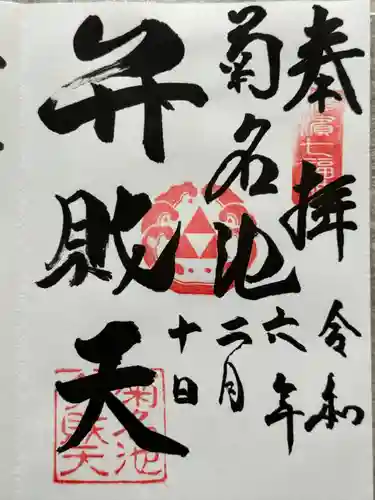 奉拝
令和
六年
二月
十日
菊名池
弁財天
濱七福
菊名池
弁財天